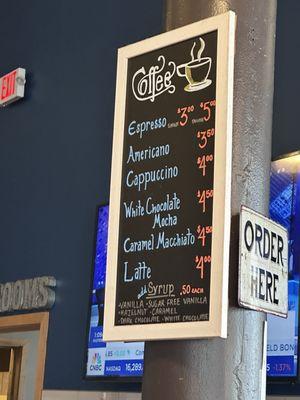 EXIT
Coffee
Espresso $3.00 $5.00
Americano $3.50
Cappuccino $4.00
White Chocolate
Mocha $4.50
Caramel Macchiato $4.50
Latte $4.00
Syrup .50 each
-VANILLA -SUGAR FREE VANILLA
-HAZELNUT -CARAMEL
-DARK CHOCOLATE -WHITE CHOCOLATE
ORDER
HERE
ROOMS
CNBC
NASDAQ
16,289
ELD BONDS
-1.37%